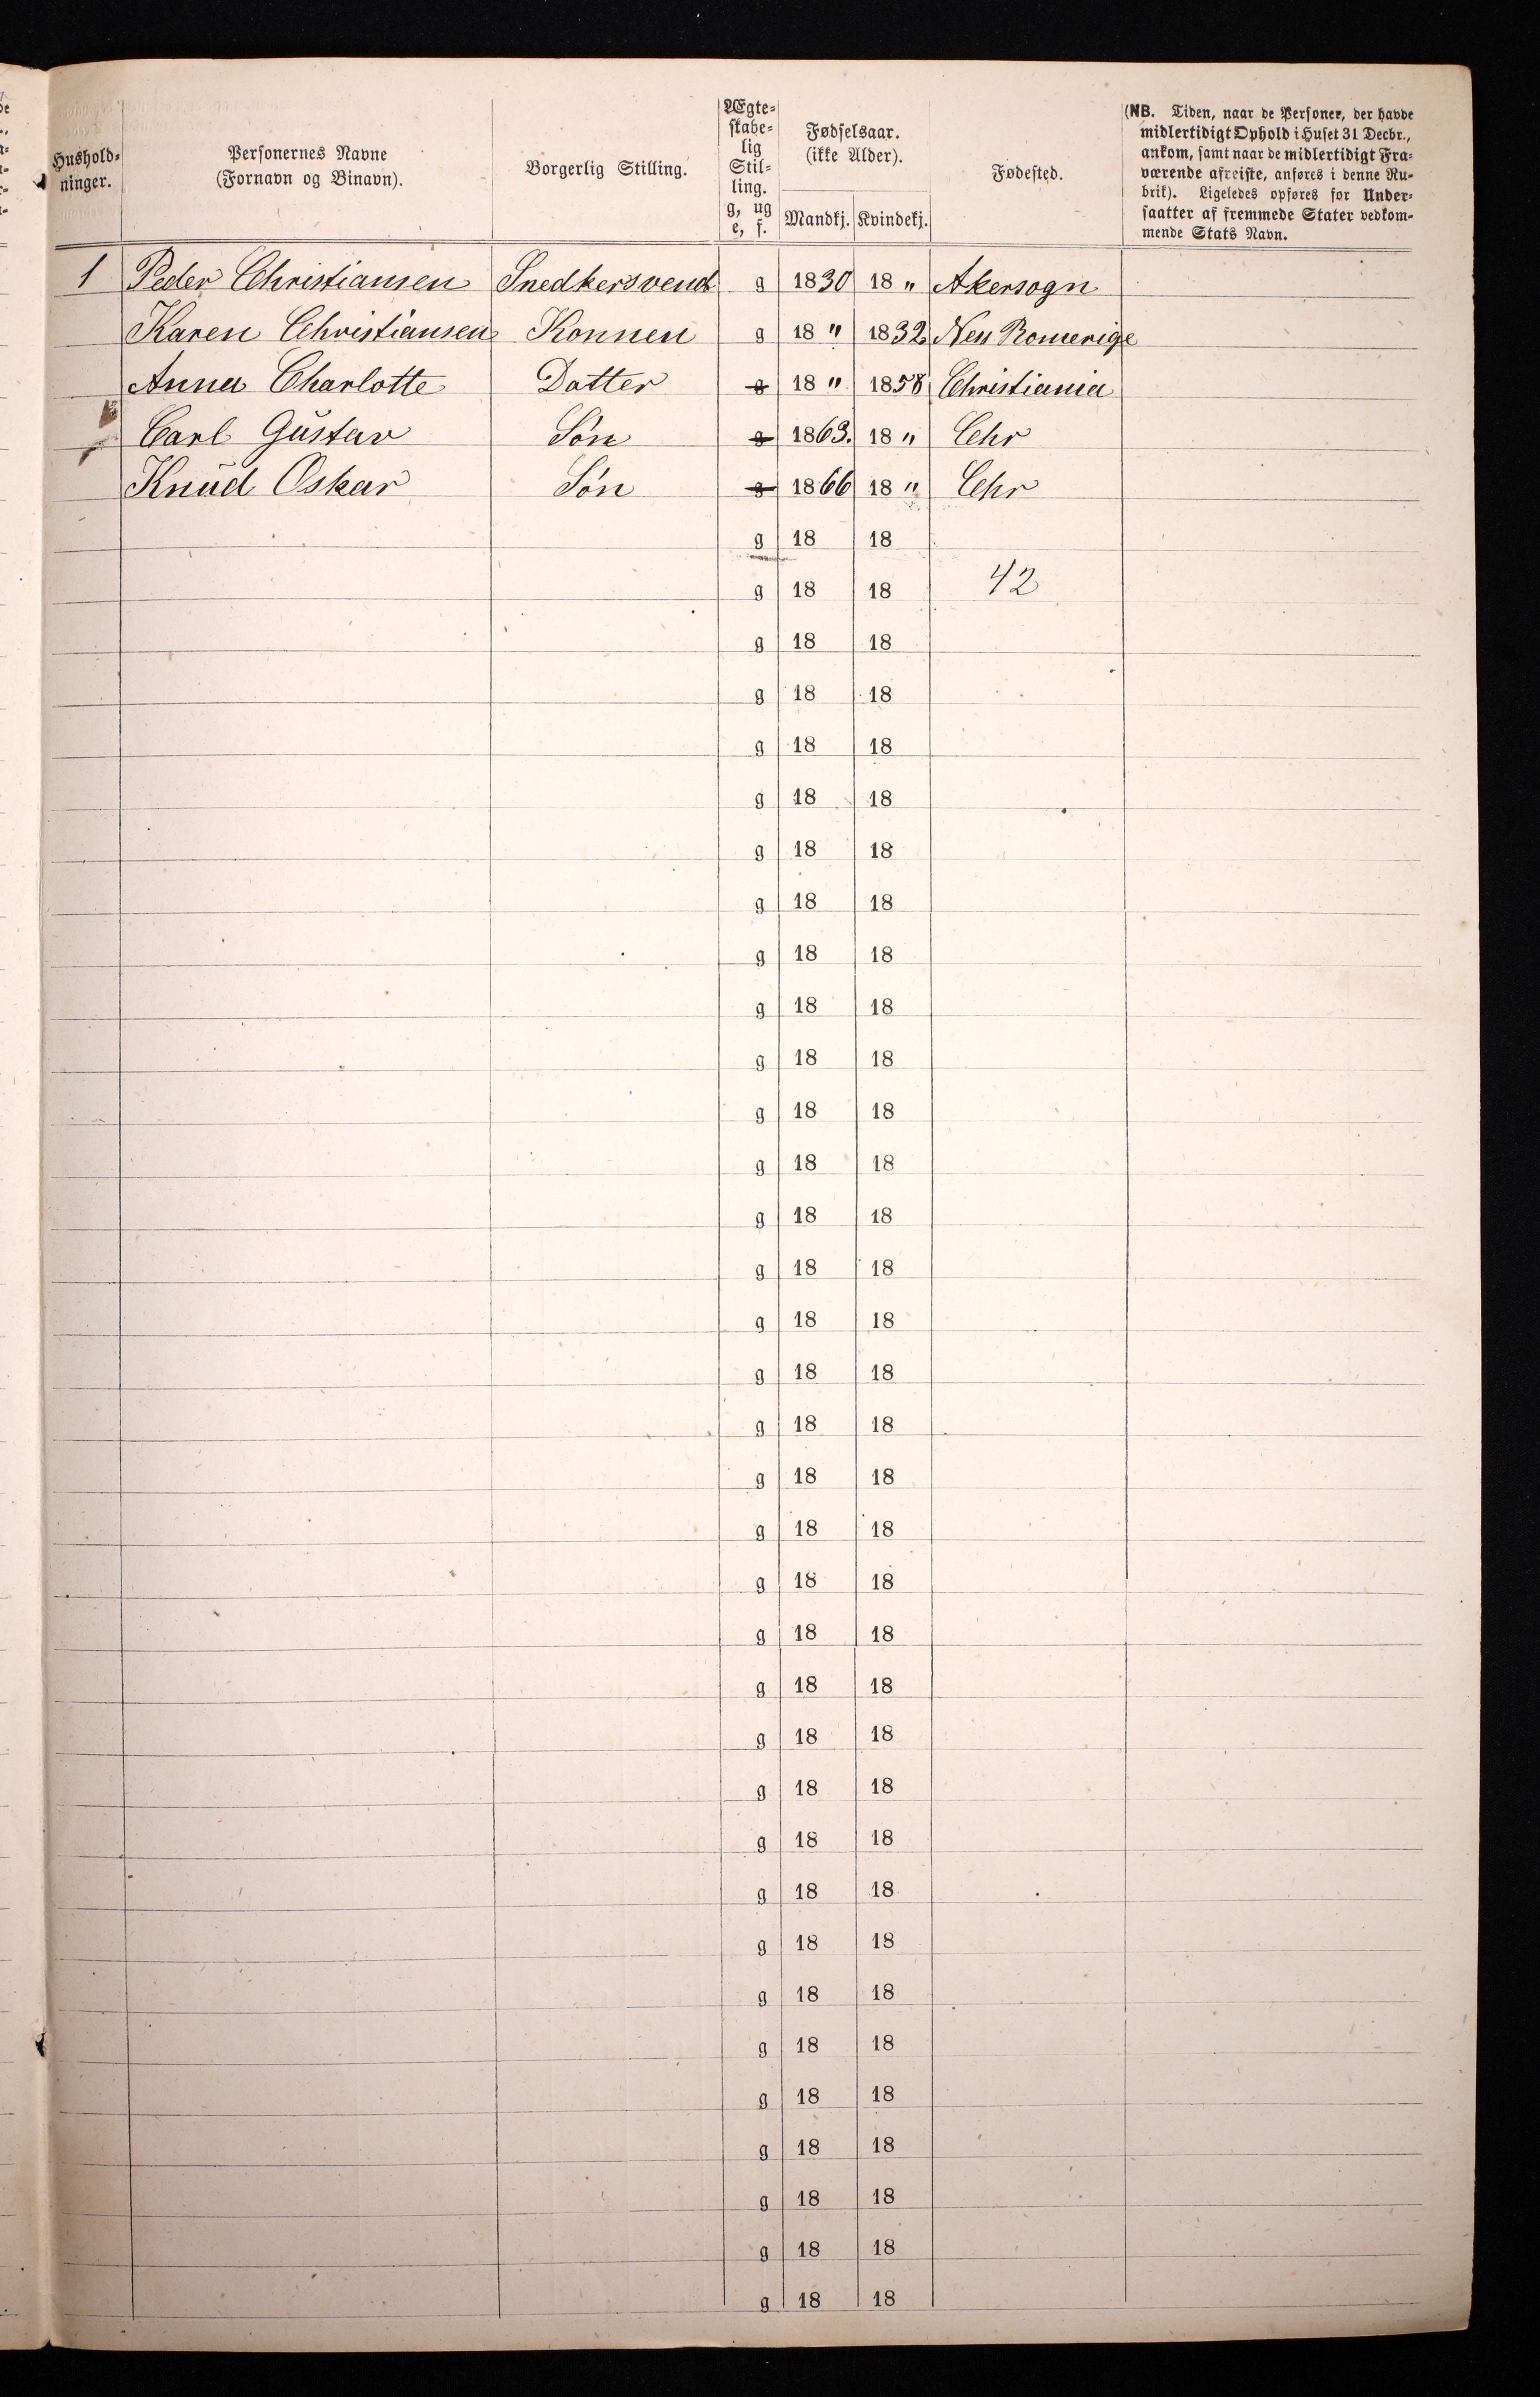 Hushold-
ninger.
Personernes Navne
(Fornavn og Binavn).
Borgerlig Stilling.
Ægte-
skabe-
lig
Stil-
ling.
g, ug
e, f.
Fødselsaar.
(ikke Alder).
Mandkj. Kvindekj.
Fødested.
(NB. Tiden, naar de Personer, der havde
midlertidigt Ophold i Huset 31 Decbr.,
ankom, samt naar de midlertidigt Fra-
værende afreiste, anføres i denne Ru-
brik). Ligeledes opføres for Under-
saatter af fremmede Stater vedkom-
mende Stats Navn.
1 Peder Christiansen Snedkersvend g 1830 18 " Akersogn
Karen Christiansen Konnen g 18 " 1832 Nes Romerige
Anna Charlotte Datter g 18 " 1858 Christiania
Carl Gustav Søn g 1863. 18 " Chr
Knud Oskar Søn g 1866 18 " Chr
g 18 18
g 18 18 42
g 18 18
g 18 18
g 18 18
g 18 18
g 18 18
g 18 18
g 18 18
g 18 18
g 18 18
g 18 18
g 18 18
g 18 18
g 18 18
g 18 18
g 18 18
g 18 18
g 18 18
g 18 18
g 18 18
g 18 18
g 18 18
g 18 18
g 18 18
g 18 18
g 18 18
g 18 18
g 18 18
g 18 18
g 18 18
g 18 18
g 18 18
g 18 18
g 18 18